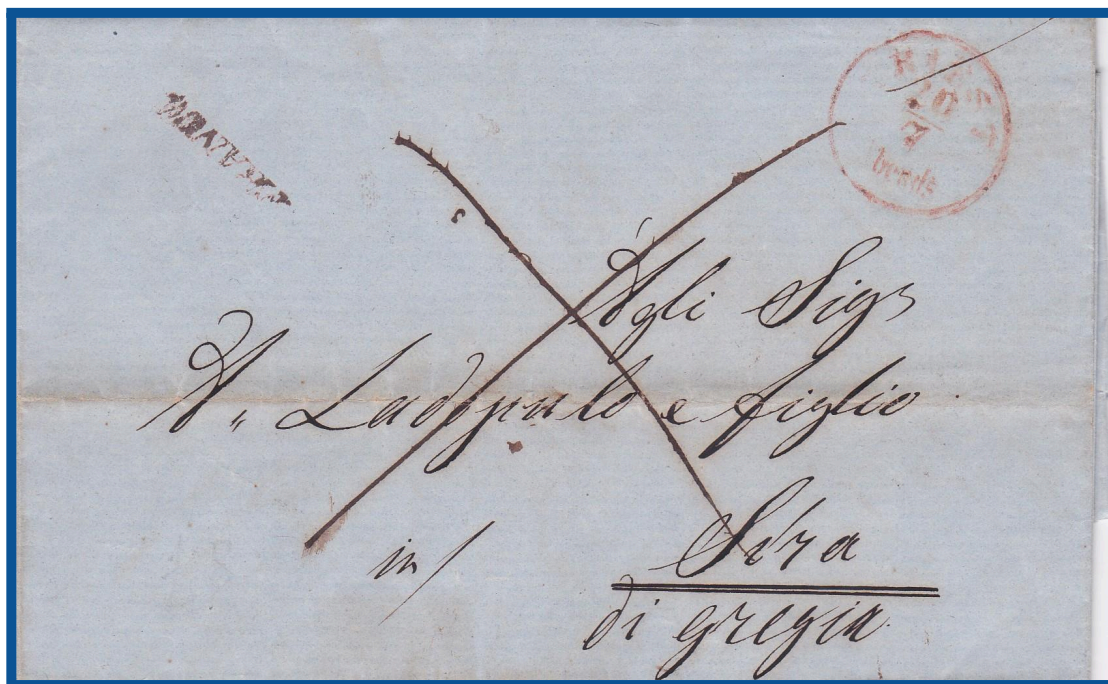 RIEST
10
7
bends
Agli Sigs
Ladopulo e figlio
in/ Sira
di gregia